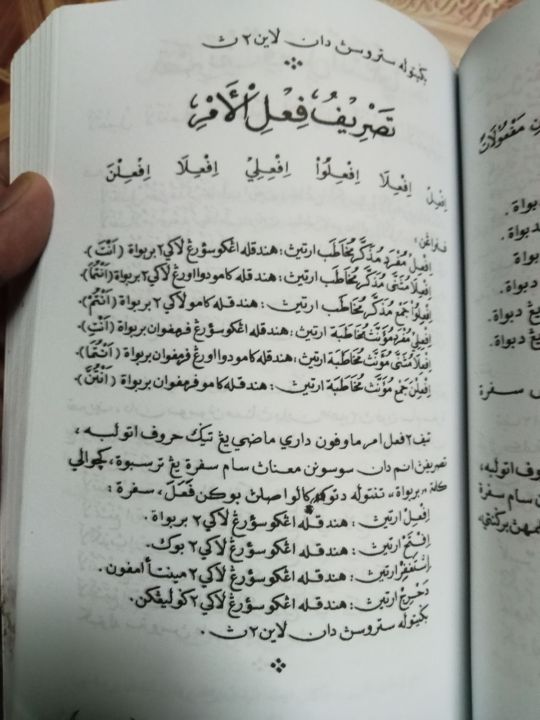 بݢيتوله ستروسڽ دان لاين٢ ڽ
تَصْرِيْفُ فِعْلِ الْأَمْرِ
اِفْعِلْ اِفْعِلَا اِفْعِلُوْا اِفْعِلِيْ اِفْعِلَا اِفْعِلْنَ
اِفْعِلْ مُفْرَد مُذَكَّر مُخَاطَب ارتيڽ: هندقله اڠكو سؤرڠ لاكي٢ بربواة (أَنْتَ).
اِفْعِلَا مُثَنَّى مُذَكَّر مُخَاطَب ارتيڽ: هندقله كامو دوا اورڠ لاكي٢ بربواة (أَنْتُمَا).
اِفْعِلُوْا جَمْع مُذَكَّر مُخَاطَب ارتيڽ: هندقله كامو لاكي٢ بربواة (أَنْتُمْ).
اِفْعِلِيْ مُفْرَد مُؤَنَّث مُخَاطَبة ارتيڽ: هندقله اڠكو سؤرڠ فرمفوان بربواة (أَنْتِ).
اِفْعِلَا مُثَنَّى مُؤَنَّث مُخَاطَبة ارتيڽ: هندقله كامو دوا اورڠ فرمفوان بربواة (أَنْتُمَا).
اِفْعِلْنَ جَمْع مُؤَنَّث مُخَاطَبة ارتيڽ: هندقله كامو فرمفوان بربواة (أَنْتُنَّ).
تيف٢ فعل امر ماوفون داري ماضي يڠ تيݢ حروف اتولبه،
تصريفن انم دان سوسونن معناڽ سام سفرة يڠ ترسبوة، كچوالي
كات «بربواة» تنتوله دتوكر كالو اصلڽ بوكن فَعَلَ، سفرة:
اِفْعِلْ ارتيڽ: هندقله اڠكو سؤرڠ لاكي٢ بربواة.
اِفْتَحْ ارتيڽ: هندقله اڠكو سؤرڠ لاكي٢ بوك.
اِسْتَغْفِرْ ارتيڽ: هندقله اڠكو سؤرڠ لاكي٢ مينتأ امفون.
دَحْرِجْ ارتيڽ: هندقله اڠكو سؤرڠ لاكي٢ ݢوليڠكن.
بݢيتوله ستروسڽ دان لاين٢ ڽ.